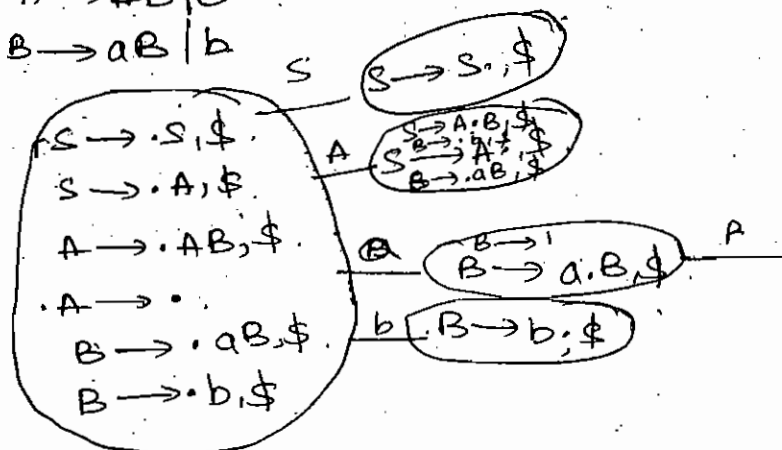 B → aB | b
S
S → S., $
S → .S, $.
S → .A, $
A → .AB, $.
.A → .
B → .aB, $.
B → .b, $
A
S → A.B, $
S → A., $
B → .aB, $
B → a.B, $
b
.B → b., $